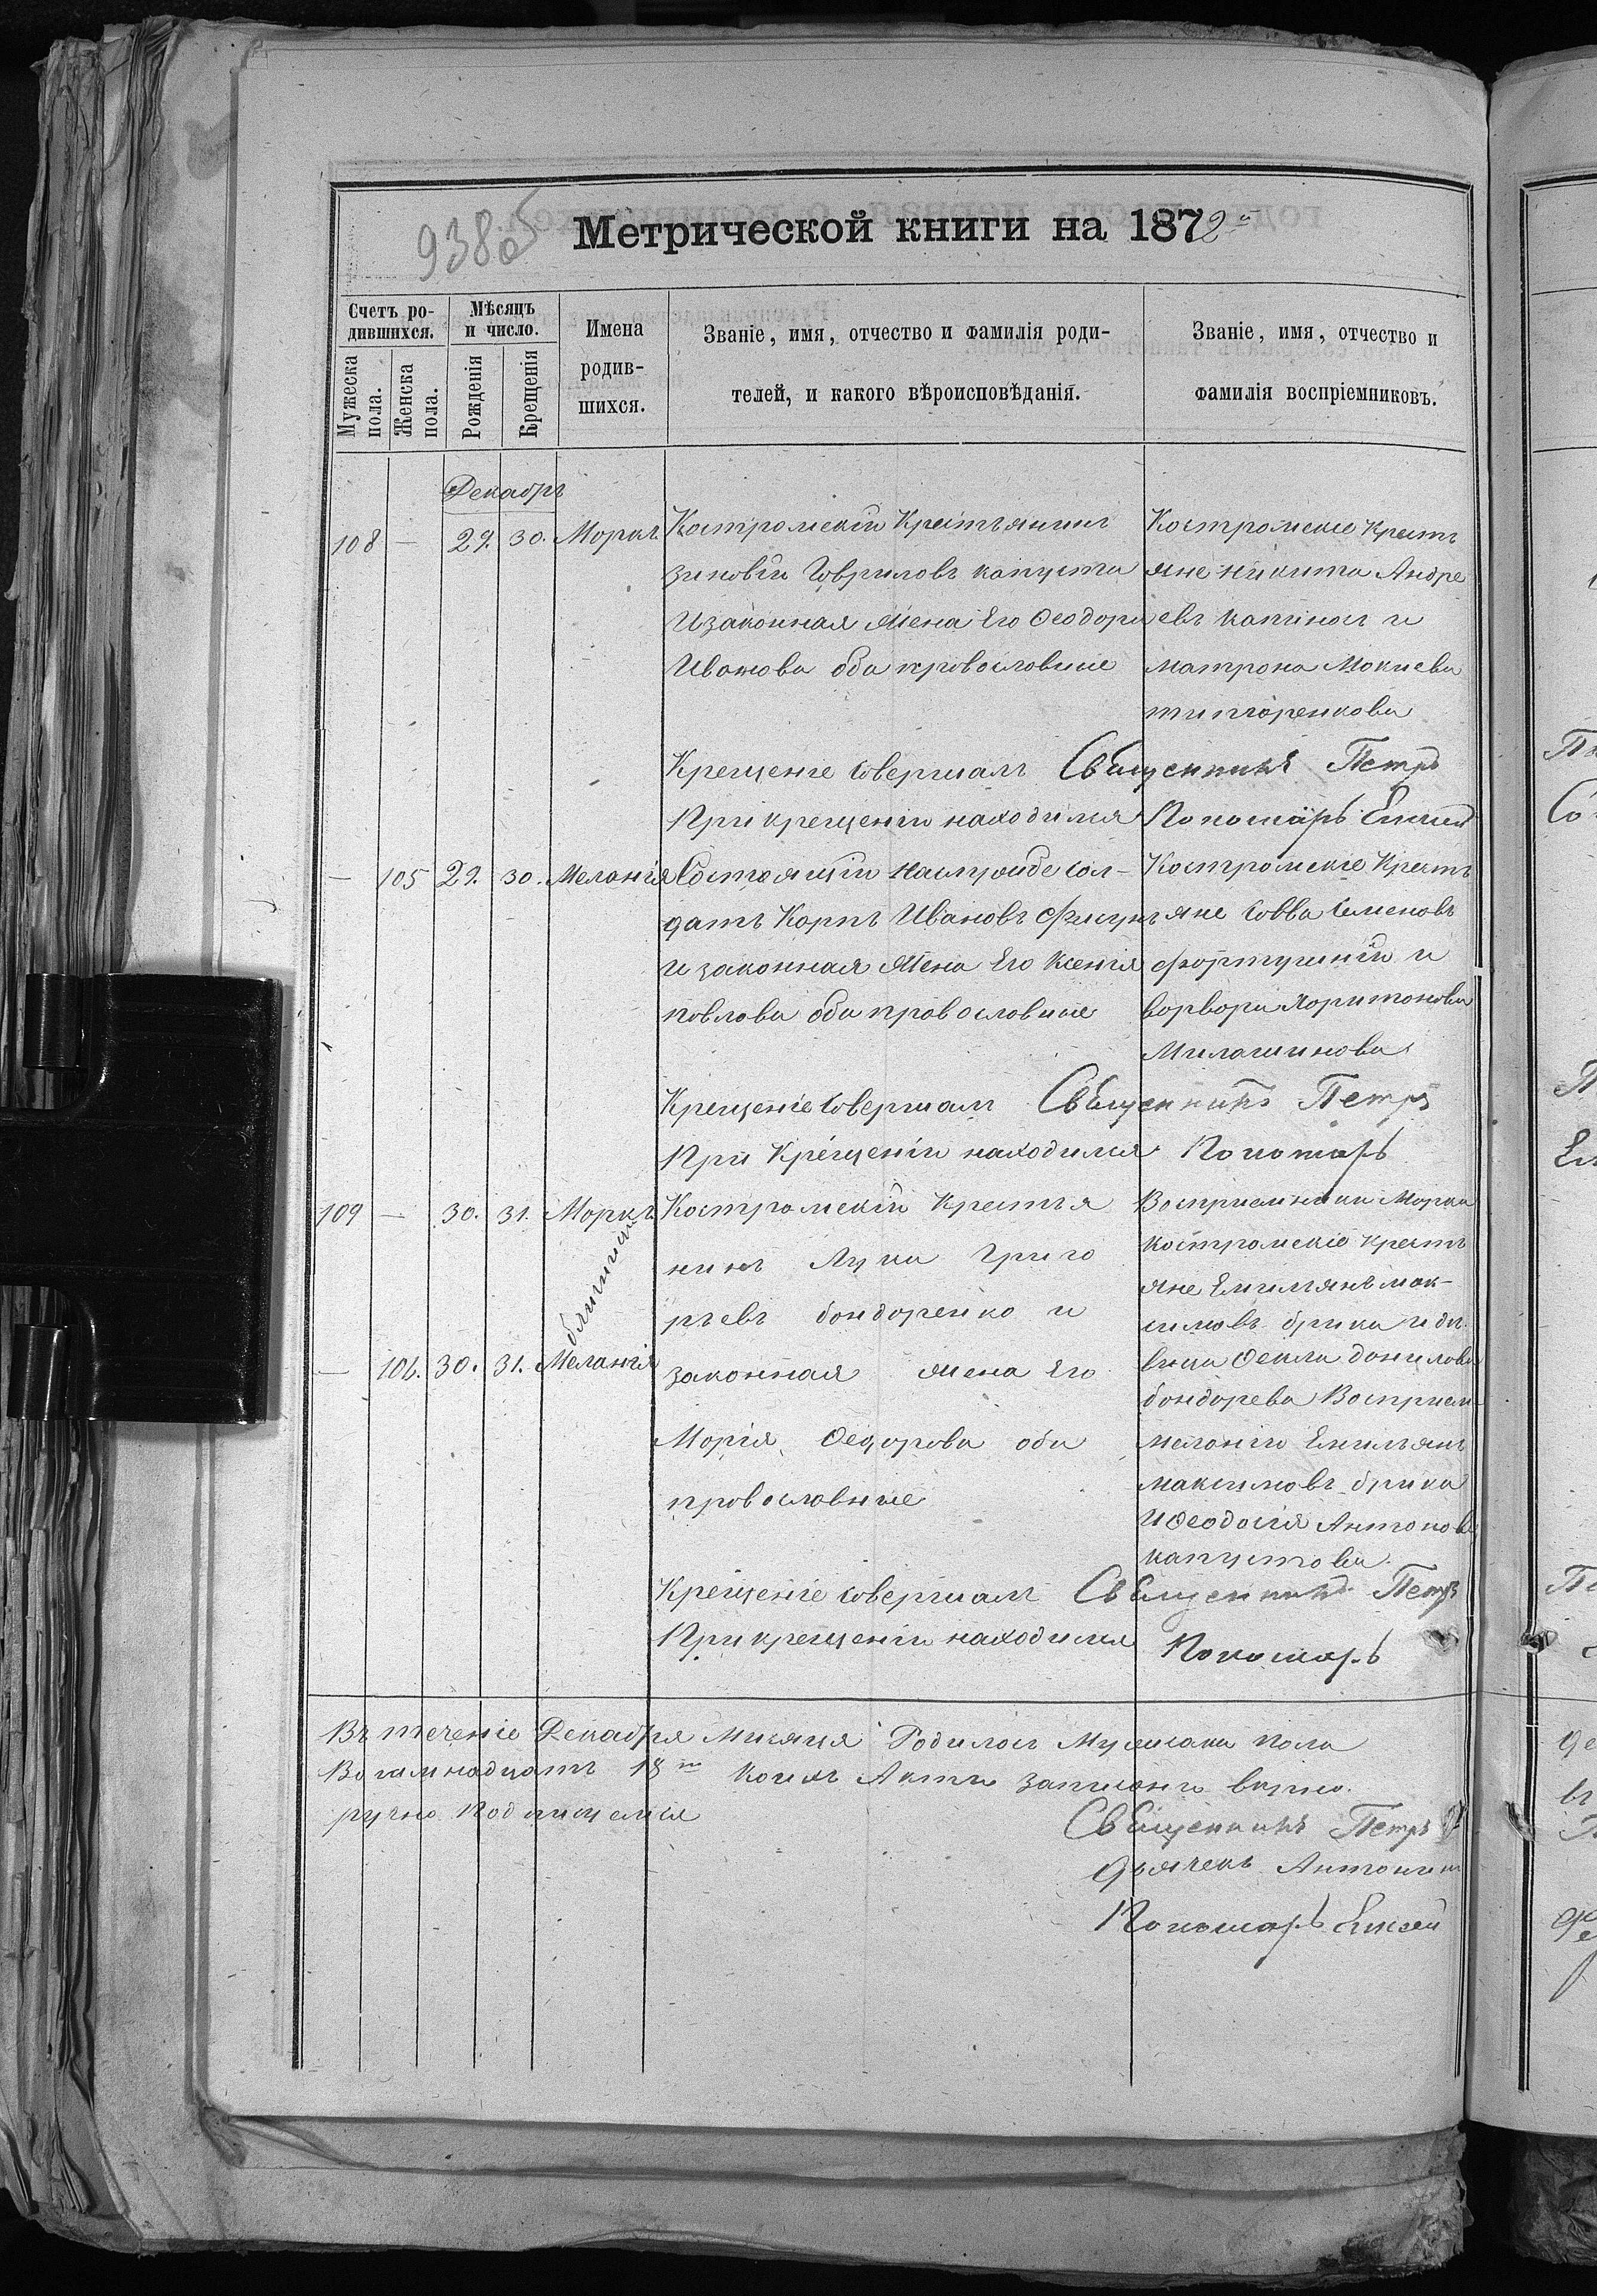 938об
Метрической книги на 1872й
Счетъ ро-
дившихся.
Мужеска пола.
Женска пола.
Мѣсяцъ
и число.
Рожденія
Крещенія
Имена
родив-
шихся.
Званіе, имя, отчество и фамилія роди-
телей, и какого вѣроисповѣданія.
Званіе, имя, отчество и
фамилія воспріемниковъ.
Декабръ
108 — 29. 30. Маркъ
Костромскій Крестьянинъ
зиновій Гавриловъ капуста
И законная жена Его Феодора
Иванова оба православные
Костромскіе Кресть
яне никита Андре
евъ капинос и
матрона Мокиева
Крещеніе совершалъ Священникъ Петръ
При крещеніи находился Пономарь Елисей
— 105 29. 30. Меланія
Состоящій на службе сол-
датъ Карпъ Ивановъ Фисунъ
и законная жена Его Ксенія
павлова оба православные
Костромскіе Кресть
яне Савва Семеновъ
и
варвара Харитонова
Крещеніе совершалъ Священникъ Петръ
При Крещеніи находился Пономарь
109 — 30. 31. Маркъ
близнята
— 106. 30. 31. Меланія
Костромскій Крестья
нинъ Лука Григо
рьевъ бондаренко и
законная жена Его
Марія Федорова оба
православные
Восприемники Марка
костромскіе кресть
яне Емильянъ мак-
симовъ брика и дѣ
вица Фекла данилова
бондарева Восприем
меланіи Емильянъ
максимовъ брика
И Феодосія Антонова
капустова.
Крещеніе совершалъ Священникъ Петръ
При крещеніи находился Пономарь
Въ теченіе Декабря Мисяця Родилось Мужеска Пола
Восамнадцать 18ть коихъ Акты записаны верно.
ручно подписуемся
Священникъ Петръ
Дьячекъ Антоній
Пономарь Елисей